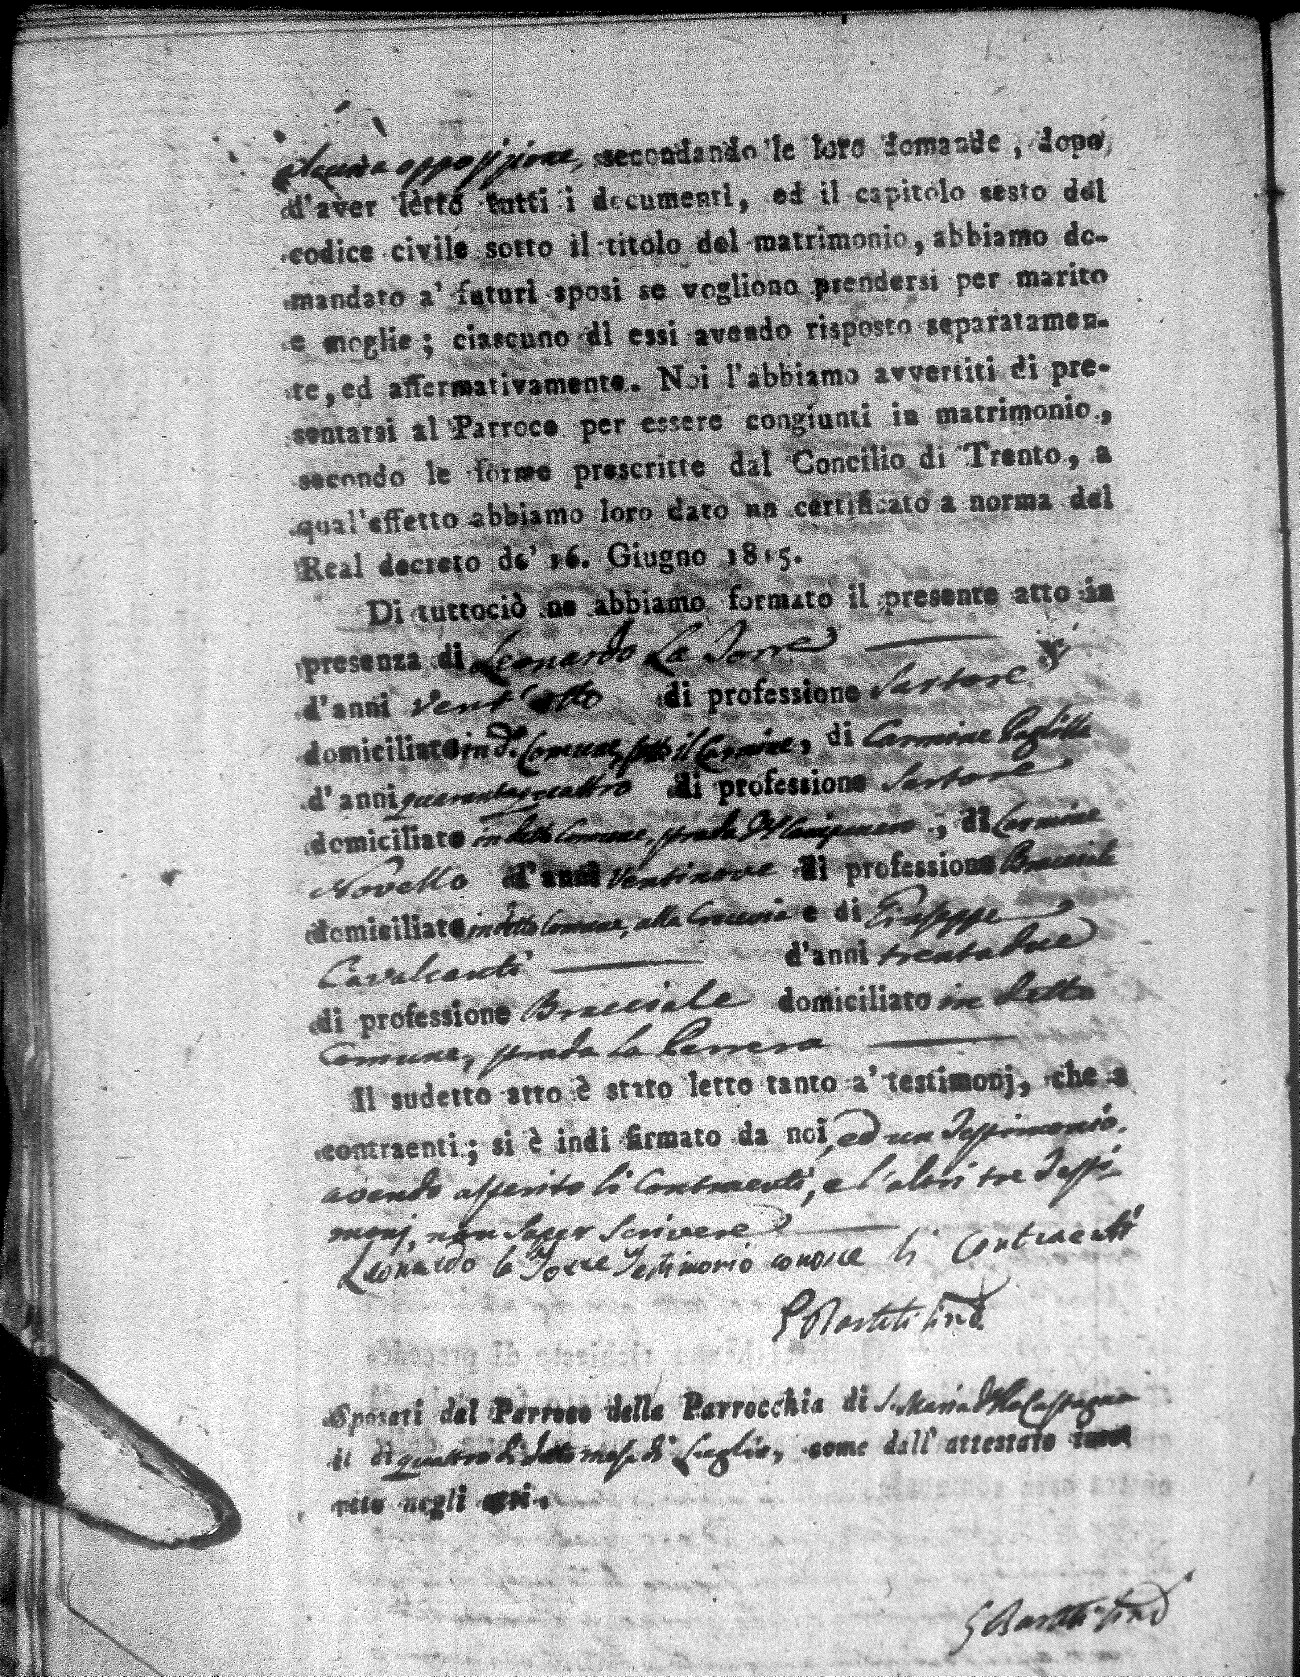 alcuna opposizione, secondando le loro domande, dopo
d'aver letto tutti i documenti, ed il capitolo sesto del
codice civile sotto il titolo del matrimonio, abbiamo do-
mandato a' futuri sposi se vogliono prendersi per marito
e moglie; ciascuno di essi avendo risposto separatamen-
te, ed affermativamente. Noi l'abbiamo avvertiti di pre-
sentarsi al Parroco per essere congiunti in matrimonio,
secondo le forme prescritte dal Concilio di Trento, a
qual'effetto abbiamo loro dato un certificato a norma del
Real decreto de' 16. Giugno 1815.
Di tuttociò ne abbiamo formato il presente atto in
presenza di Leonardo La Torre
d'anni vent'otto di professione Sartore
domiciliato in d.º Comune, sotto il Carmine, di Carmine
d'anni quarantaquattro di professione Sartore
domiciliato in detto Comune, strada del, di Carmine
Novello d'anni ventinove di professione Bracciale
domiciliato in detto Comune, alla e di Giuseppe
Cavalcanti d'anni trentadue
di professione Bracciale domiciliato in detto
Comune, strada la
Il sudetto atto è stato letto tanto a' testimonj, che a
contraenti; si è indi firmato da noi, ed un Testimonio,
avendo asserito li Contraenti, e l'altri tre Testi-
monj, non saper scrivere
Leonardo la Torre Testimonio conosce li Contraenti
Sposati dal Parroco della Parrocchia di S. Maria della
il dì quattro di detto mese di Luglio, come dall' attestato inse-
rito negli atti.